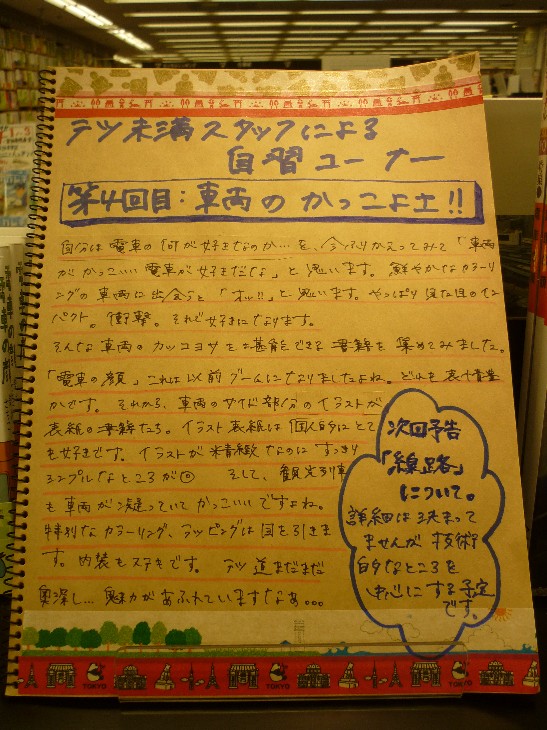 テツ未満スタッフによる
自習コーナー
第4回目:車両のかっこよ士!!
自分は電車の何が好きなのか…を、今ふりかえってみて「車両
がかっこいい電車が好きだな」と思います。鮮やかなカラーリ
ングの車両に出会うと「オッ!!」と思います。やっぱり見た目のイン
パクト。衝撃。それで好きになります。
そんな車両のカッコヨサを堪能できる書籍を集めてみました。
「電車の顔」これは以前ブームになりましたよね。どれも表情豊
かです。それから、車両のサイド部分のイラストが
表紙の書籍たち。イラスト表紙は個人的にとて
も好きです。イラストが精緻なのにすっきり
シンプルなところが◎ そして、観光列車
も車両が凝っていてかっこいいですよね。
特別なカラーリング、ラッピングは目を引きま
す。内装もステキです。テツ道まだまだ
奥深し…魅力があふれていますなあ…
次回予告
「線路」
について。
詳細は決まって
ませんが技術
的なところを
中心にする予定
です。
TOKYO TOKYO TOKYO